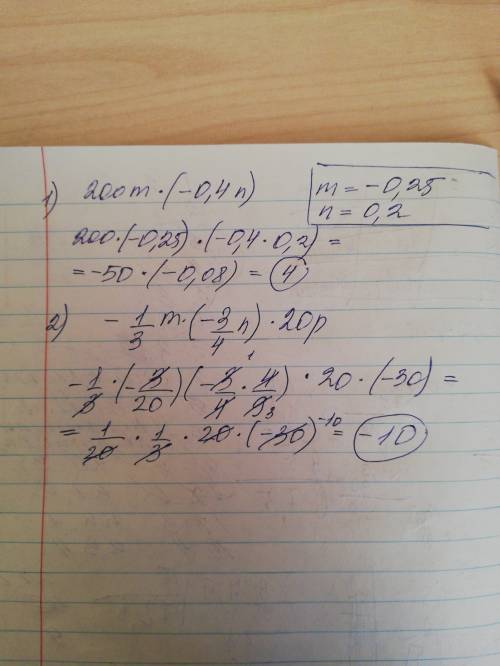 1) 200m·(-0,4n) m = -0,25
n = 0,2
200·(-0,25)·(-0,4·0,2) =
= -50·(-0,08) = 4
2) -1/3 m·(-3/4 n)·20p
-1/3·(-3/20)(-3/4·4/9)·20·(-30) =
= 1/20·1/3·20·(-30) = -10